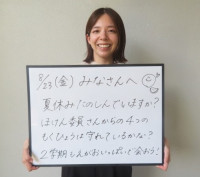 8/23(金) みなさんへ
夏休み1のしんでいますか?
ほけん委員さんからの4つの
もくひょうは守れているかな?
2学期しえがおいっぱいで会おう!